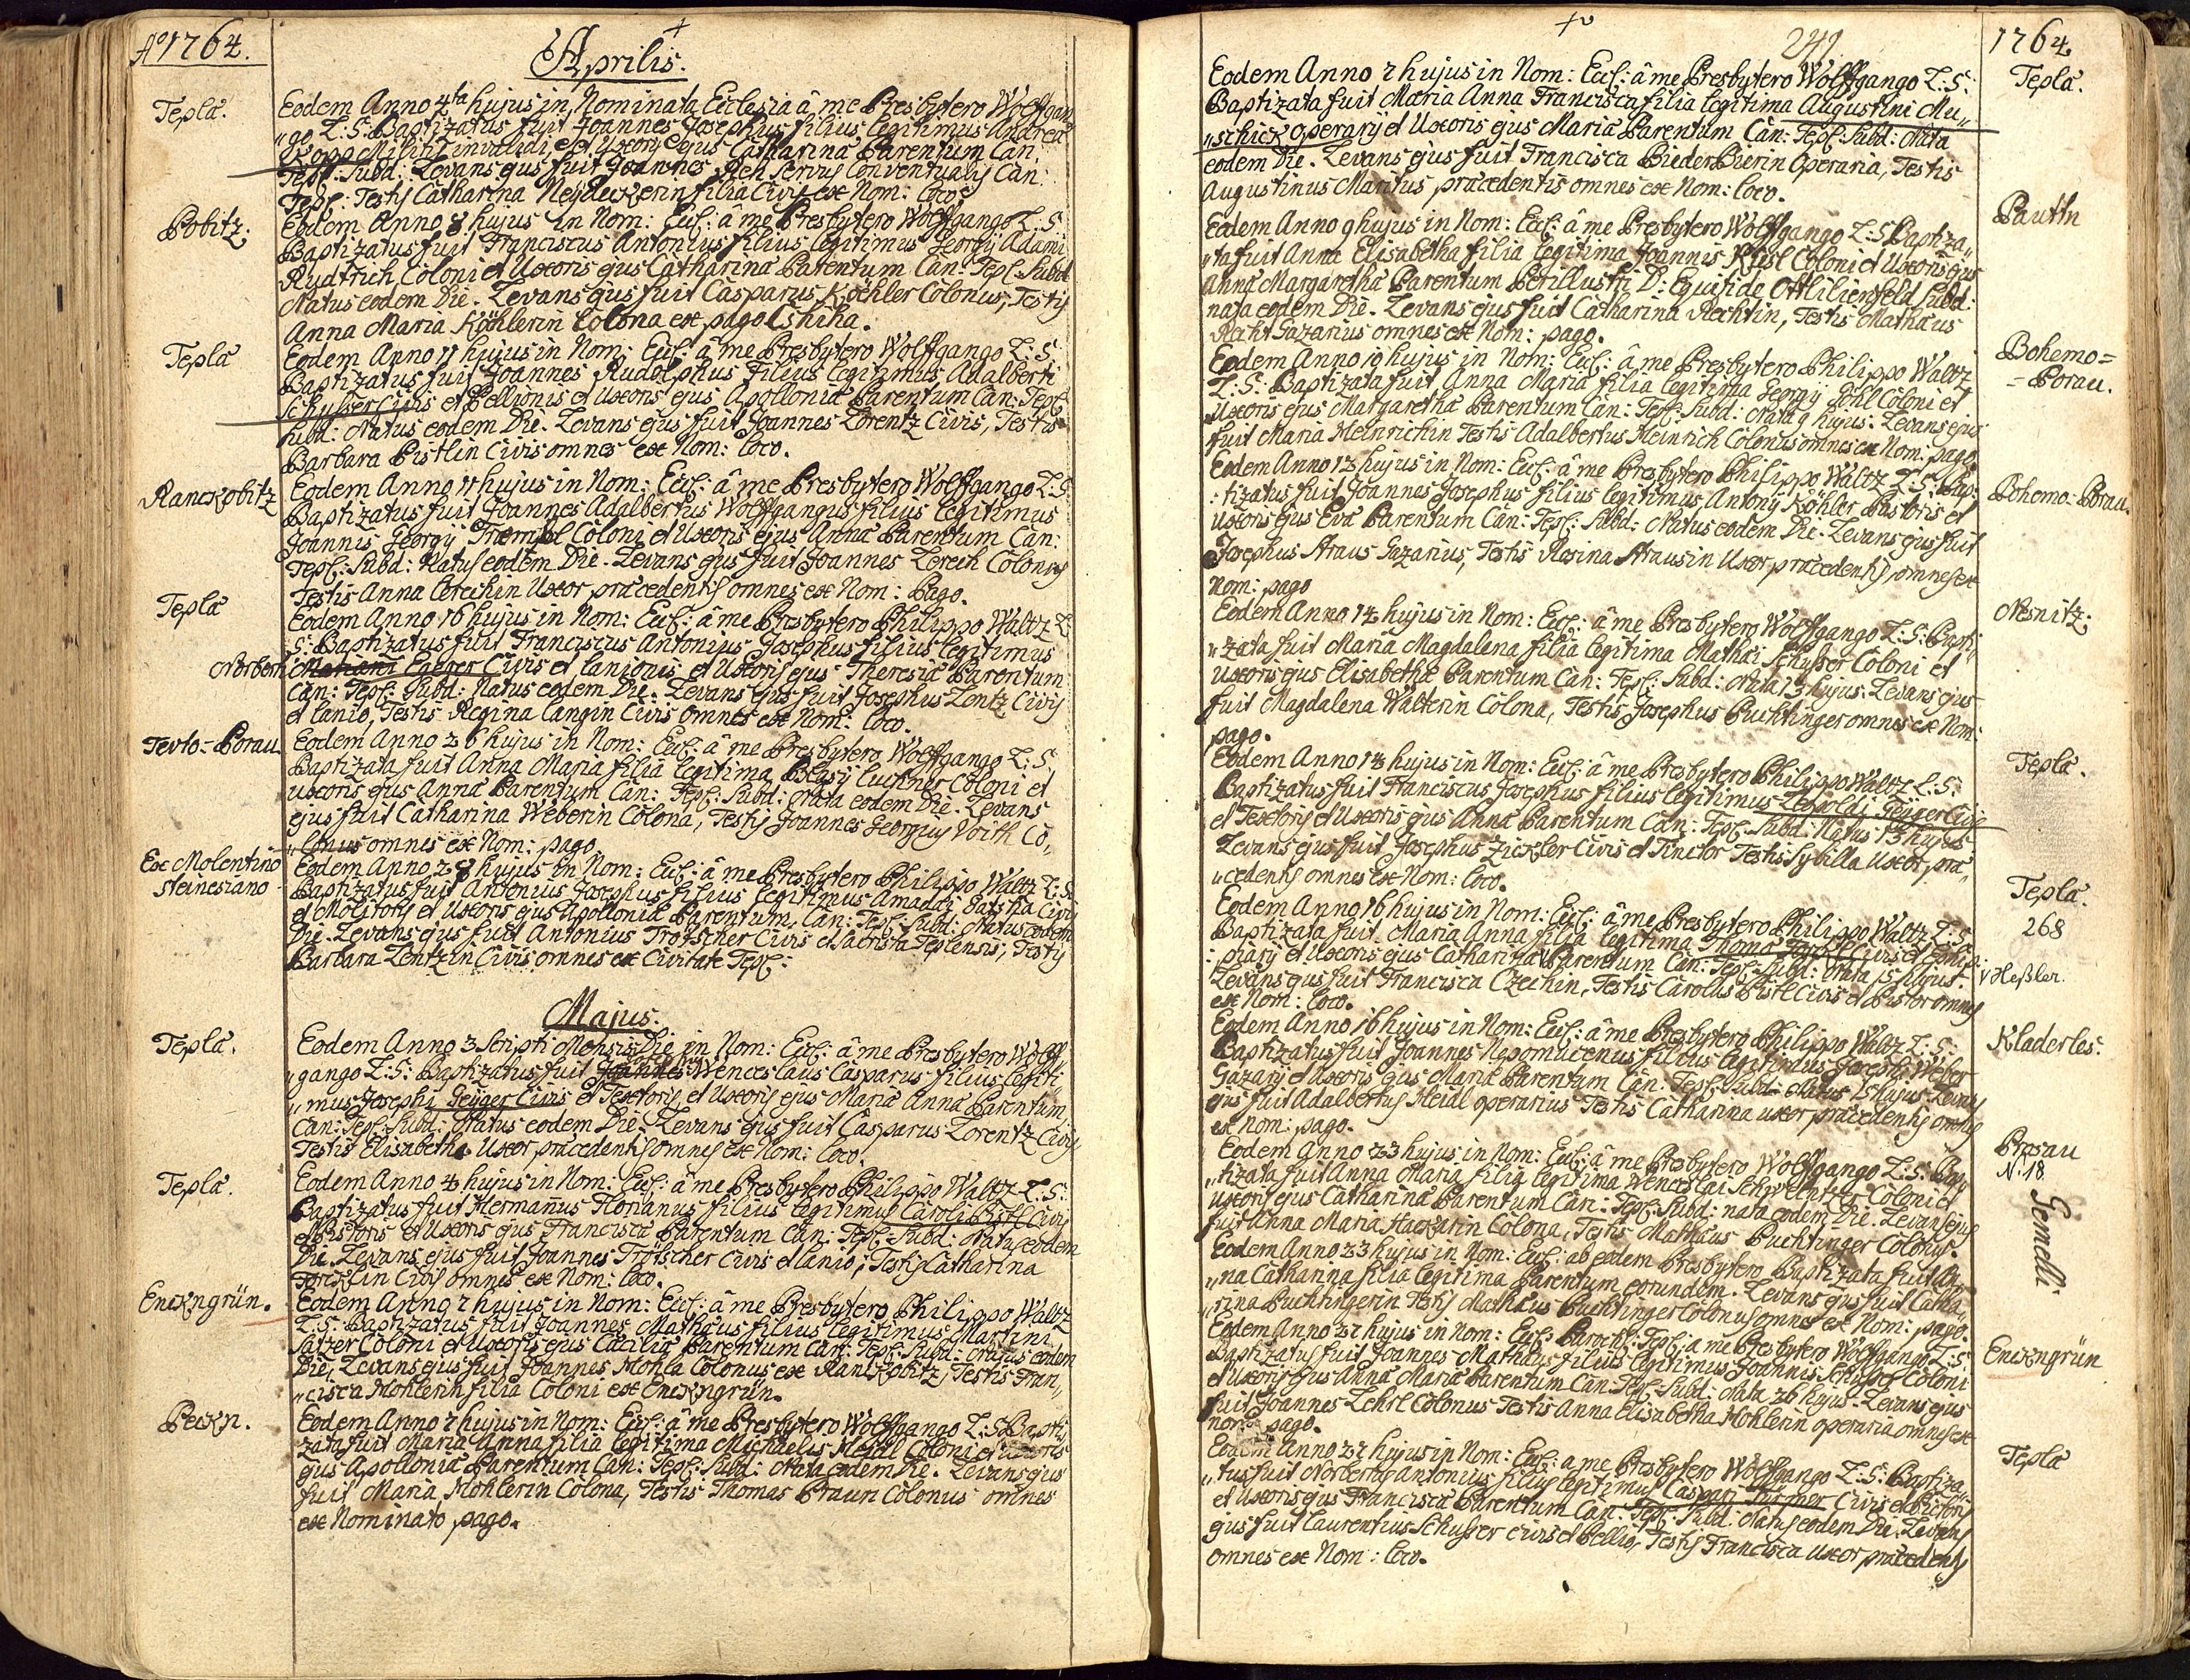 Aº 1764.
Aprilis.
Tepla.
Eodem Anno 4ta hujus in Nominata Ecclesia â me Presbytero Wolffgan„
„go L: S: Baptizatus fuit Joannes Josephus filius legitimus Andreæ
Militis invalidi, et Uxoris ejus Catharina Parentum Can:
Tepl: Subd: Levans ejus fuit Joannes Servus Conventualis Can:
Tepl: Testis Catharina filia Civis ex Nom: loco
Pobitz:
Eodem Anno 8 hujus in Nom: Eccl: â me Presbytero Wolffgango L: S:
Baptizatus fuit Franciscus Antonius filius legitimus Georgij Adami
Rudtrich Coloni et Uxoris ejus Catharina Parentum Can: Tepl: Subd:
Natus eodem Die. Levans ejus fuit Casparus Köhler Colonus, Testis
Anna Maria Köhlerin Colona ex pago
Tepla
Eodem Anno 11 hujus in Nom: Eccl: â me Presbytero Wolffgango L: S:
Baptizatus fuit Joannes Rudolphus filius legitimus Adalberti
Schusser Civis et Pellionis et Uxoris ejus Apollonia Parentum Can: Tepl:
Subd: Natus eodem Die. Levans ejus fuit Joannes Lorentz Civis, Testis
Barbara Pistlin Civis omnes ex Nom: loco.
Ranckobitz
Eodem Anno 11 hujus in Nom: Eccl: â me Presbytero Wolffgango L: S:
Baptizatus fuit Joannes Adalbertus Wolffgangus filius legitimus
Joannis Georgij Coloni et Uxoris ejus Anna Parentum Can:
Tepl: Subd: Natus eodem Die. Levans ejus fuit Joannes Lerech Colonus
Testis Anna Lerechin Uxor præcedentis omnes ex Nom: Pago.
Tepla
Eodem Anno 16 hujus in Nom: Eccl: â me Presbytero Philippo Waltz L:
S: Baptizatus fuit Franciscus Antonius Josephus filius legitimus
Norberti Civis et lanionis et Uxoris ejus Theresia Parentum
Can: Tepl: Subd: Natus eodem Die. Levans ejus fuit Josephus Lentz Civis
et lanio, Testis Regina langin Civis omnes ex Nom: loco.
Teuto=Porau
Eodem Anno 26 hujus in Nom: Eccl: â me Presbytero Wolffgango L: S:
Baptizata fuit Anna Maria filia legitima Blasij Luckner Coloni et
uxoris ejus Anna Parentum Can: Tepl: Subd: Nata eodem Die. Levans
ejus fuit Catharina Weberin Colona, Testis Joannes Georgius Voith Co„
„lonus omnes ex Nom: pago.
Ex Molentino
Steinesiano
Eodem Anno 28 hujus in Nom: Eccl: â me Presbytero Philippo Waltz L: S:
Baptizatus fuit Antonius Josephus filius legitimus Amadæi Civis
et Molitoris et Uxoris ejus Apollonia Parentum Can: Tepl: Subd: Natus eodem
Die. Levans ejus fuit Antonius Trötscher Civis et Sacrista Teplensis, Testis
Barbara Lentzin Civis omnes ex Civitate Tepl:
Majus.
Tepla.
Eodem Anno 3 Scripti Mensis Die in Nom: Eccl: â me Presbytero Wolff„
„gango L: S: Baptizatus fuit Joannes Wenceslaus Casparus filius legiti„
„mus Josephi Geÿger Civis et Textoris, et Uxoris ejus Maria Anna Parentum
Can: Tepl: Subd: Natus eodem Die. Levans ejus fuit Casparus Lorentz Civis
Testis Elisabetha Uxor præcedentis omnes ex Nom: loco.
Tepla.
Eodem Anno 4 hujus in Nom: Eccl: â me Presbytero Philippo Waltz L: S:
Baptizatus fuit Hermanus Florianus filius legitimus Caroli Pistl Civis
et Pistoris et Uxoris ejus Francisca Parentum Can: Tepl: Subd: Natus eodem
Die. Levans ejus fuit Joannes Trötscher Civis et lanio, Testis Catharina
Civis omnes ex Nom: loco.
Enckngrün.
Eodem Anno 7 hujus in Nom: Eccl: â me Presbytero Philippo Waltz
L: S: Baptizatus fuit Joannes Mathæus filius legitimus Martini
Satzer Coloni et Uxoris ejus Cæcilia Parentum Can: Tepl: Subd: Natus eodem
Die, Levans ejus fuit Joannes Mohla Colonus ex Ranckobitz, Testis Fran„
„cisca Mohlerin filia Coloni ex Enckngrün.
Peckn.
Eodem Anno 7 hujus in Nom: Eccl: â me Presbytero Wolffgango L: S: Bapti„
zata fuit Maria Anna filia legitima Michaelis Heidl Coloni et uxoris
ejus Apollonia Parentum Can: Tepl: Subd: Nata eodem Die. Levans ejus
fuit Maria Mohlerin Colona, Testis Thomas Braun Colonus omnes
ex Nominato pago.
241
1764.
Tepla.
Eodem Anno 7 hujus in Nom: Eccl: â me Presbytero Wolffgango L: S:
Baptizata fuit Maria Anna Francisca filia legitima Augustini Mu„
„schick operarij et Uxoris ejus Maria Parentum Can: Tepl: Subd: Nata
eodem Die. Levans ejus fuit Francisca BiederBierin Operaria, Testis
Augustinus Maritus præcedentis omnes ex Nom: loco.
Pauttn
Eodem Anno 9 hujus in Nom: Eccl: â me Presbytero Wolffgango L: S: Baptiza„
„ta fuit Anna Elisabetha filia legitima Joannis Coloni et Uxoris ejus
Anna Margaretha Parentum Perillustri D: Equiti de Ottlilienfeld Subd:
nata eodem Die. Levans ejus fuit Catharina Rechtin, Testis Mathæus
Recht Gazarius omnes ex Nom: pago.
Bohemo=
=Porau.
Eodem Anno 10 hujus in Nom: Eccl: â me Presbytero Philippo Waltz
L: S: Baptizata fuit Anna Maria filia legitima Georgij Pöhl Coloni et
Uxoris ejus Margaretha Parentum Can: Tepl: Subd: Nata 9 hujus. Levans ejus
fuit Maria Heinrichin Testis Adalbertus Heinrich Colonus omnes ex Nom: pago.
Bohemo=Porau.
Eodem Anno 12 hujus in Nom: Eccl: â me Presbytero Philippo Waltz L: S: Bap:
:tizatus fuit Joannes Josephus filius legitimus Antonij Köhler Pastoris et
Uxoris ejus Eva Parentum Can: Tepl: Subd: Natus eodem Die. Levans ejus fuit
Josephus Straus Gazarius, Testis Rosina Strausin Uxor præcedentis omnes ex
Nom: pago
Nesnitz:
Eodem Anno 14 hujus in Nom: Eccl: â me Presbytero Wolffgango L: S: Bapti„
„zata fuit Maria Magdalena filia legitima Mathæi Schusser Coloni et
Uxoris ejus Elisabetha Parentum Can: Tepl: Subd: Nata 13 hujus. Levans ejus
fuit Magdalena Wälterin Colona, Testis Josephus Puchtinger omnes ex Nom:
pago.
Tepla.
Eodem Anno 14 hujus in Nom: Eccl: â me Presbytero Philippo Waltz L: S:
Baptizatus fuit Franciscus Josephus filius legitimus Leopoldi Geÿger Civis
et Textoris et Uxoris ejus Anna Parentum Can: Tepl: Subd: Natus 13 hujus
Levans ejus fuit Josephus Zickler Civis et Tinctor Testis Sybilla Uxor præ„
„cedentis omnes ex Nom: loco.
Tepla.
268
Eodem Anno 16 hujus in Nom: Eccl: â me Presbytero Philippo Waltz L: S:
Baptizata fuit Maria Anna filia legitima Thoma Civis et
:piarij et Uxoris ejus Catharina Parentum Can: Tepl: Subd: Nata 15 hujus.
v Heßler.
Levans ejus fuit Francisca Czechin, Testis Carolus Pistl Civis et Pistor omnes
ex Nom: loco.
Kladerles:
Eodem Anno 16 hujus in Nom: Eccl: â me Presbytero Philippo Waltz L: S:
Baptizatus fuit Joannes Nepomucenus filius legitimus Josephi Weber
Gazarij et Uxoris ejus Maria Parentum Can: Tepl: Subd: Natus 15 hujus. Levans
ejus fuit Adalbertus Heidl operarius Testis Catharina uxor præcedentis omnes
ex Nom: pago.
Prosau
N: 18.
Gemelli.
Eodem Anno 23 hujus in Nom: Eccl: â me Presbytero Wolffgango L: S: Bap„
„tizata fuit Anna Maria filia legitima Wenceslai Coloni et
uxoris ejus Catharina Parentum Can: Tepl: Subd: nata eodem Die. Levans ejus
fuit Anna Maria Hackarin Colona, Testis Mathæus Puchtinger Colonus.
Eodem Anno 23 hujus in Nom: Eccl: ab eodem Presbytero Baptizata fuit An„
„na Catharina filia legitima Parentum eorundem. Levans ejus fuit Catha„
„rina Puchtingerin Testis Mathæus Puchtinger Colonus omnes ex Nom: pago.
Enckngrün
Eodem Anno 27 hujus in Nom: Eccl: Paroch: Tepl: a me Presbytero Wolffgango L: S:
Baptizatus fuit Joannes Mathæus filius legitimus Joannis Schusser Coloni
et Uxoris ejus Anna Maria Parentum Can: Tepl: Subd: Nata 26 hujus. Levans ejus
fuit Joannes Lehrl Colonus Testis Anna Elisabetha Mohlerin operaria omnes ex
nom: pago.
Tepla
Eodem Anno 27 hujus in Nom: Eccl: a me Presbytero Wolffgango L: S: Baptiza„
„tus fuit Norbertus Antonius filius legitimus Caspari Civis et Pictoris
et Uxoris ejus Francisca Parentum Can: Tepl: Subd: Natus eodem Die. Levans
ejus fuit Laurentius Schusser civis et Pellio, Testis Francisca Uxor præcedentis
omnes ex Nom: loco.